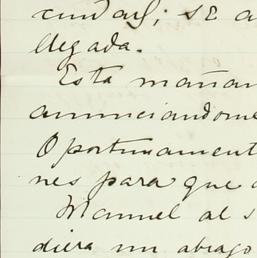 se a
llegada.
Esta mañan
anunciandome
Oportunament
nes para que
Manuel al s
diera un abrazo